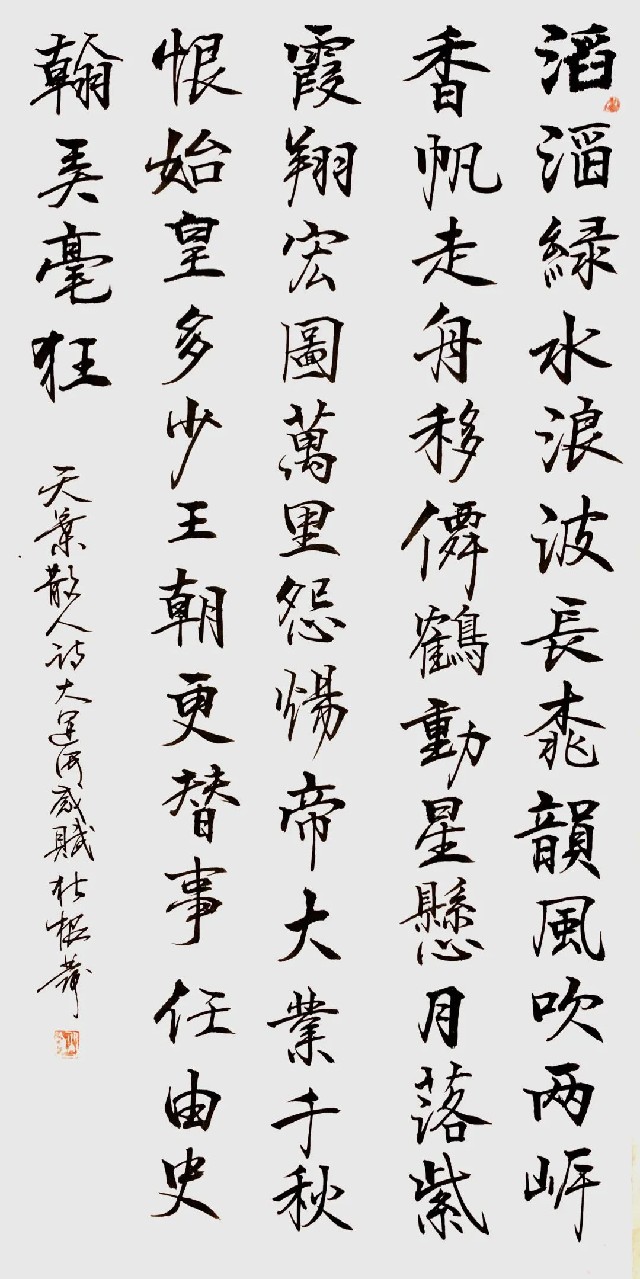 滔滔緑水浪波長桃韻風吹两岸
香帆走舟移僊鶴動星懸月落紫
霞翔宏圖萬里怨煬帝大業千秋
恨始皇多少王朝更替事任由史
翰弄毫狂
天葉散人诗大運河感賦杜根華